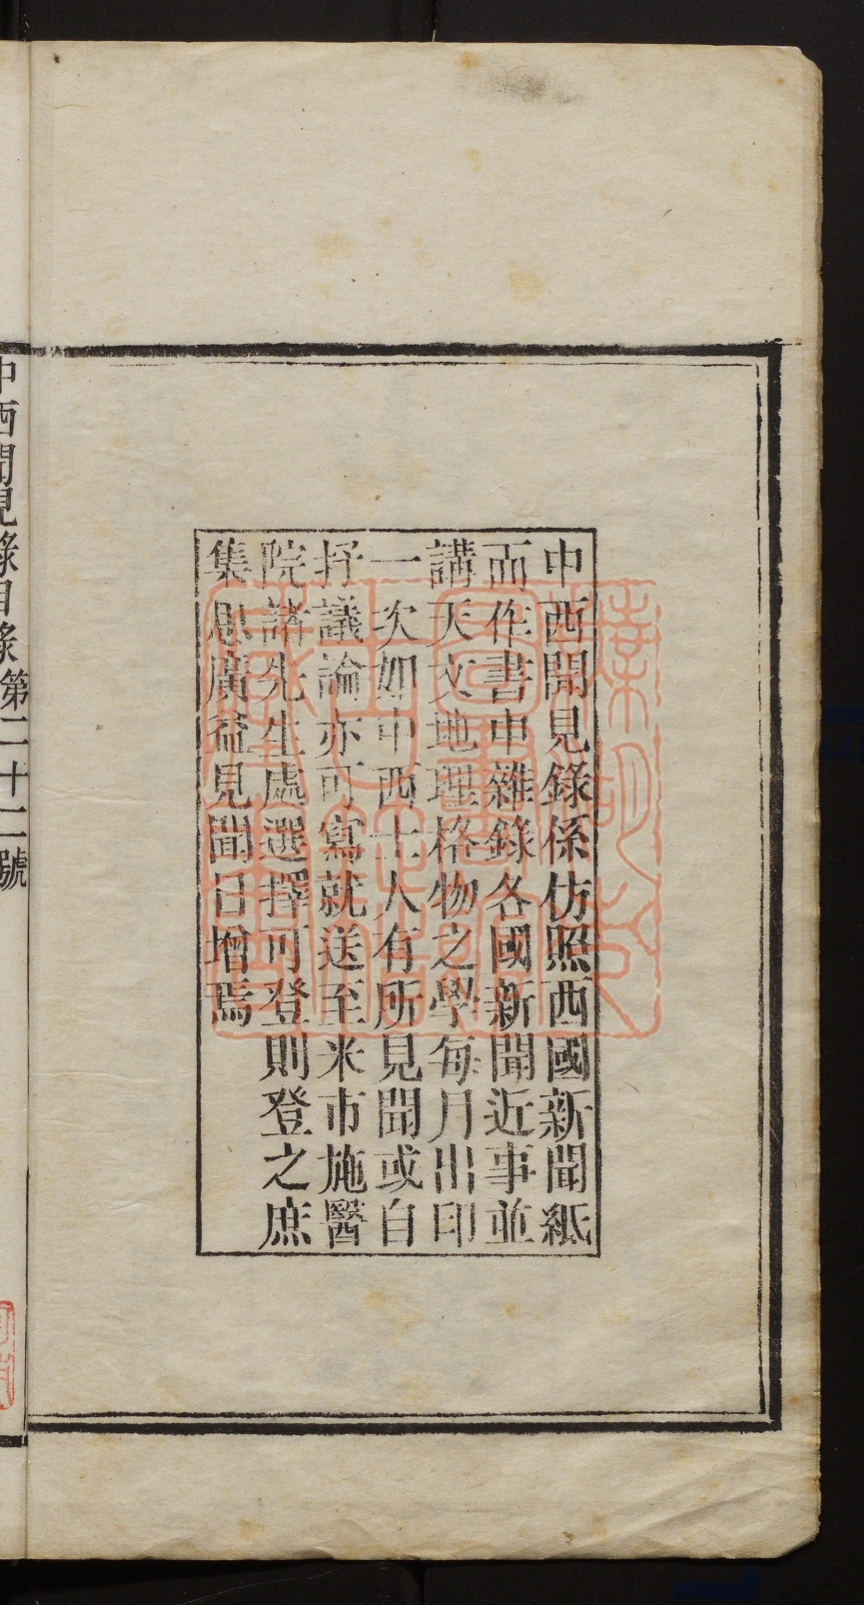 中西聞見錄係仿照西國新聞紙
而作書中雜錄各國新聞近事並
講天文地理格物之學每月出印
一次如中西士人有所見聞或自
抒議論亦可寫就送至米市施醫
院諸先生處選擇可登則登之庶
集思廣益見聞日增焉
中西聞見錄目錄第二十二號